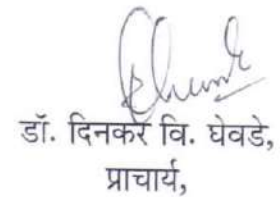 डॉ. दिनकर वि. घेवडे,
प्राचार्य,